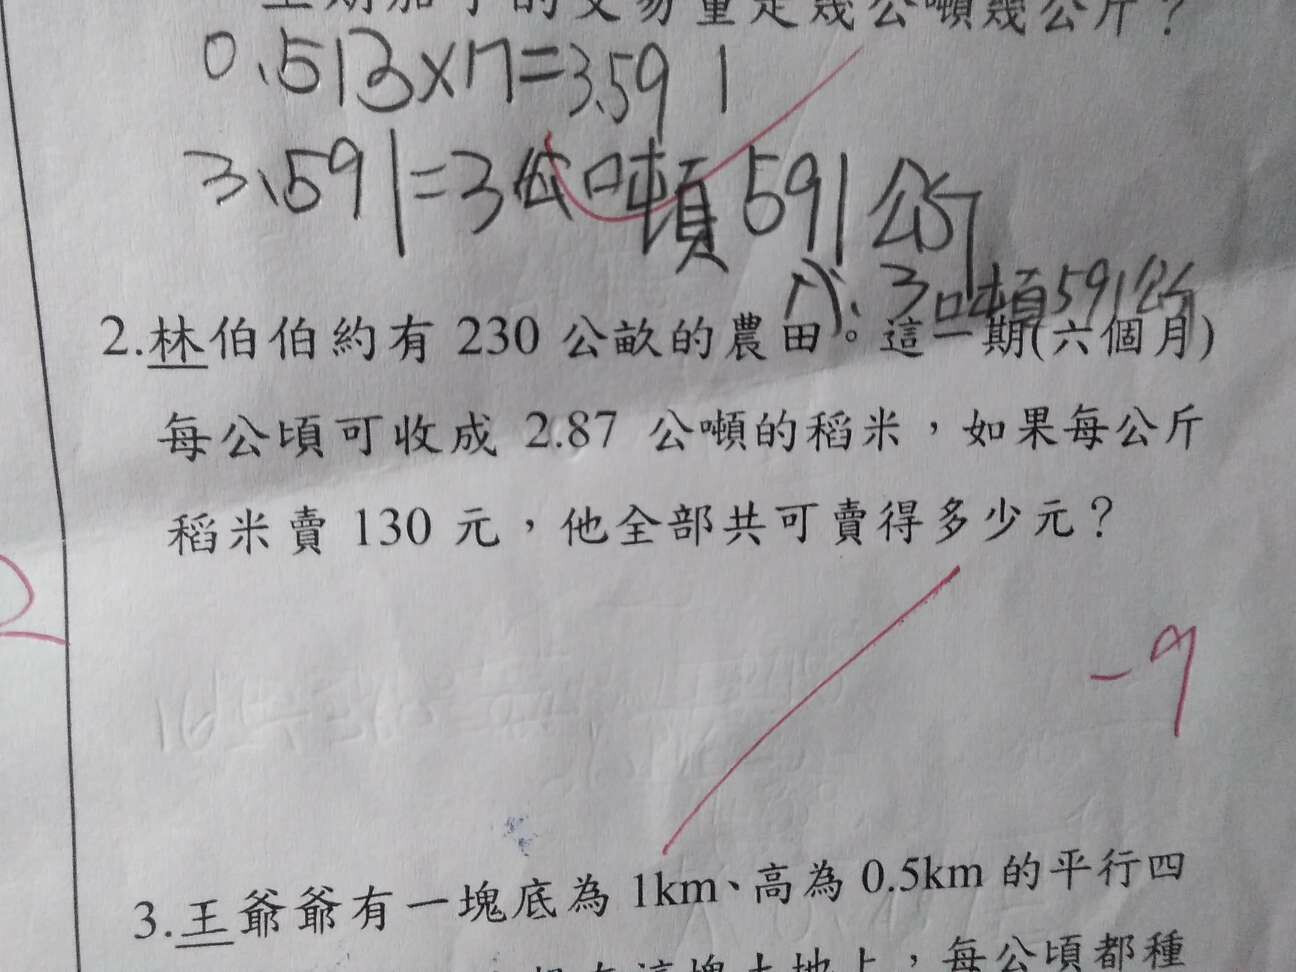 星期茄子的交易量是幾公噸幾公斤？
0.513×7=3.591
3.591=3公噸591公斤
A:3噸591公斤
2.林伯伯約有 230 公畝的農田。這一期(六個月)
每公頃可收成 2.87 公噸的稻米，如果每公斤
稻米賣 130 元，他全部共可賣得多少元？
-9
3.王爺爺有一塊底為 1km、高為 0.5km 的平行四
塊土地上，每公頃都種